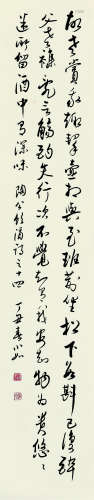 故人賞我趣挈壺相與至班荊坐松下數斟已復醉
父老雜亂言觴酌失行次不覺知有我安知物為貴悠悠
迷所留酒中有深味 陶公飲酒詩之十四 丁丑春小如